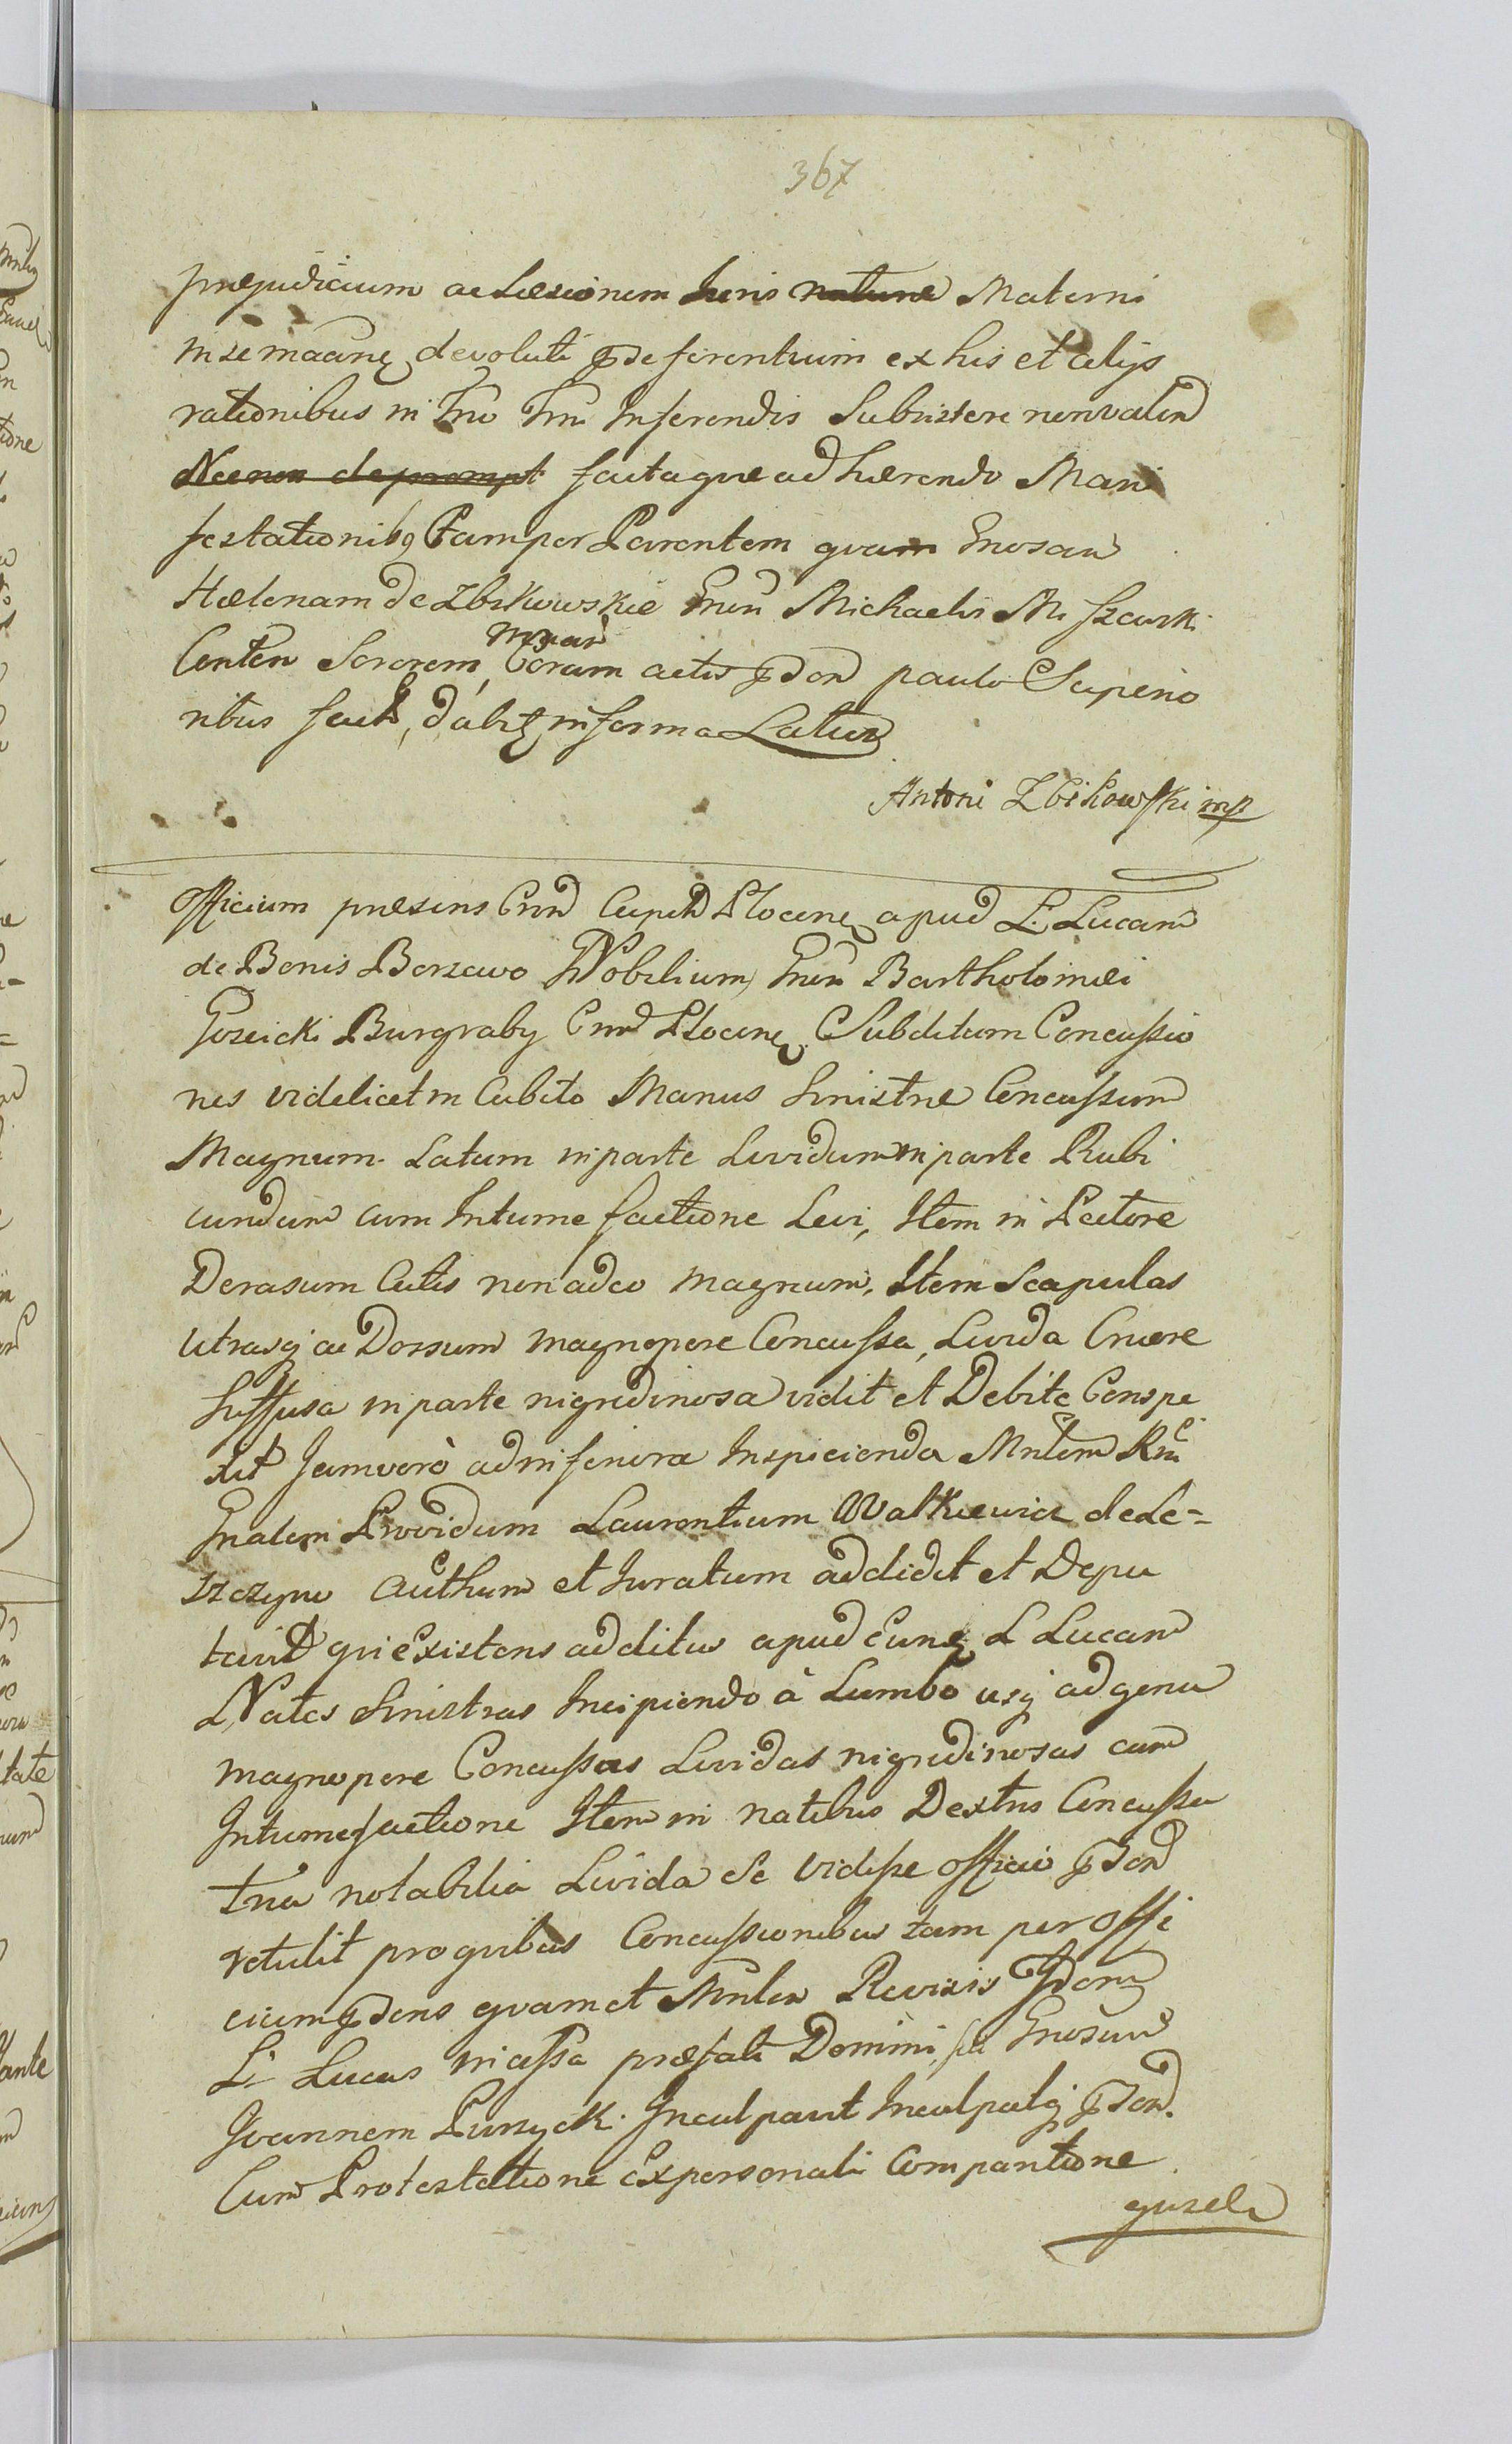 367
præjudicium ac Læsionem Juris naturæ Materni
in se maane devoluti pdeferentium ex his et alijs
rationibus in Tno Tmi Inferendis Subsistere non valen
Necnon deprompt factaque adhærendo Mani
festationibq tam per Parentem quam Gnosam
Hælenam de Zbikowskie Gnsn Michaelis Miszewski
Conten Sororem, Coram actis pdon paulo Superio
ribus fact, dabit, in forma Latior
Antoni Zbikowski mp
Officium præsens Cnn Capit Plocen apud L. Lucam
de Bonis Borzewo Nobilium, Gnsn Bartholomæi
Goscicki Burgraby Cnn Plocen Subditum Concussio
nes videlicet in Cubito Manus Sinistræ Concussum
Magnum Latum in parte Lividum in parte Rubi
cundum cum Intumefactione Levi, Item in Pectore
Derasum Cutis non adeo magnum, Item Scapulas
utrasq ac Dorsum magnopere Concussa, Livida Cruore
Suffusa in parte nigredinosa vidit et Debite Conspe
xit Jam verò ad inferiora Inspicienda Mntem Rni
Gnalem Providum Laurentium Walkiewicz de Le=
szczyno Authum et Juratum addidit et Depu
tavit qui existens additus apud eunq L Lucam
Nates Sinistras Incipiendo à Lumbo usq ad genu
magnopere Concussas Lividas nigredinosas cum
Intumefactione Item in natibus Dextris Concussa
tria notabilia Livida Se vidisse officio pdon
retulit pro quibus Concussionibus tam per offi
cium pdens quam et Mnlen Revisis Idem
L. Lucas in assa præfati Domini sui Gnosum
Joannem Pursycki Inculpavit Inculpatq pdon.
Cum Protestatione ex personali Comparitione